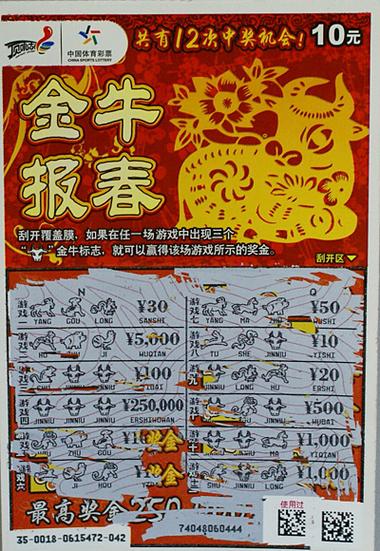 顶呱刮
中国体育彩票
CHINA SPORTS LOTTERY
共有12次中奖机会！
10元
金牛
报春
刮开覆盖膜，如果在任一场游戏中出现三个
“ ”金牛标志，就可以赢得该场游戏所示的奖金。
刮开区
N
游戏一
¥30
YANG GOU LONG SANSHI
游戏二
¥5,000
JI WUQIAN
游戏三
¥100
JINNIU YIBAI
游戏四
¥250,000
JINNIU JINNIU JINNIU
¥1
奖金
ZHU GOU
戏六
奖金
Q
游戏七
¥50
YANG MA WUSHI
游戏八
¥10
TU SHE JINNIU YISHI
¥20
JINNIU LONG HU ERSHI
游戏
¥500
JINNIU JINNIU WUBAI
¥1,000
JINNIU
¥1,000
最高奖金 250
使用过
74048060444
35-0018-0615472-042